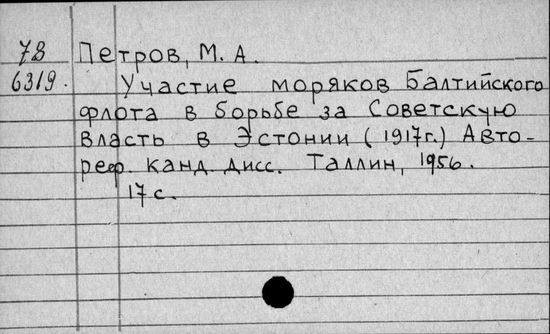 7B Петров, М. А.
6319. Участие моряков Балтийского
флота в борьбе за Советскую
власть в Эстонии (1917г.) Авто-
реф. канд. дисс. Таллин, 1956.
17 с.